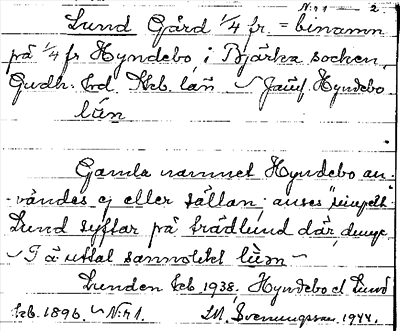 N:r 1 — 2.
Lund Gård 1/4 fr. = binamn
på 1/4 fr Hyndebo, i Bjärka socken,
Gudh. hrd. Skb. län — Jämf Hyndebo
län
Gamla namnet Hyndebo an-
vändes ej eller sällan, anses "simpelt"
Lund syftar på trädlund där,
— I ä uttal sannolikt
Lunden Skb 1938, Hyndebo el Lund
Skb. 1896. — N:r 1. M. Svenungsson, 1944.